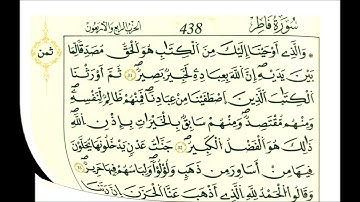 سُورَةُ فَاطِرٍ 438 الحزب الرابع والأربعون
وَالذِے أَوْحَيْنَا إِلَيْكَ مِنَ اَلْكِتَٰبِ هُوَ اَلْحَقُّ مُصَدِّقاً لِّمَا ثمن
بَيْنَ يَدَيْهِ إِنَّ اَللَّهَ بِعِبَادِهِۦ لَخَبِيرُۢ بَصِيرٞ ثُمَّ أَوْرَثْنَا
اَلْكِتَٰبَ اَلذِينَ اَصْطَفَيْنَا مِنْ عِبَادِنَا فَمِنْهُمْ ظَالِمٞ لِّنَفْسِهِۦ
وَمِنْهُم مُّقْتَصِدٞ وَمِنْهُمْ سَابِقُۢ بِالْخَيْرَٰتِ بِإِذْنِ اِللَّهِ
ذَٰلِكَ هُوَ اَلْفَضْلُ اَلْكَبِيرُ جَنَّٰتُ عَدْنٖ يَدْخُلُونَهَا يُحَلَّوْنَ
فِيهَا مِنَ اَسَاوِرَ مِن ذَهَبٖ وَلُؤْلُؤاٗ وَلِبَاسُهُمْ فِيهَا حَرِيرٞ
وَقَالُواْ اَلْحَمْدُ لِلهِ اِلذِے أَذْهَبَ عَنَّا اَلْحَزَنَ إِنَّ رَبَّنَا